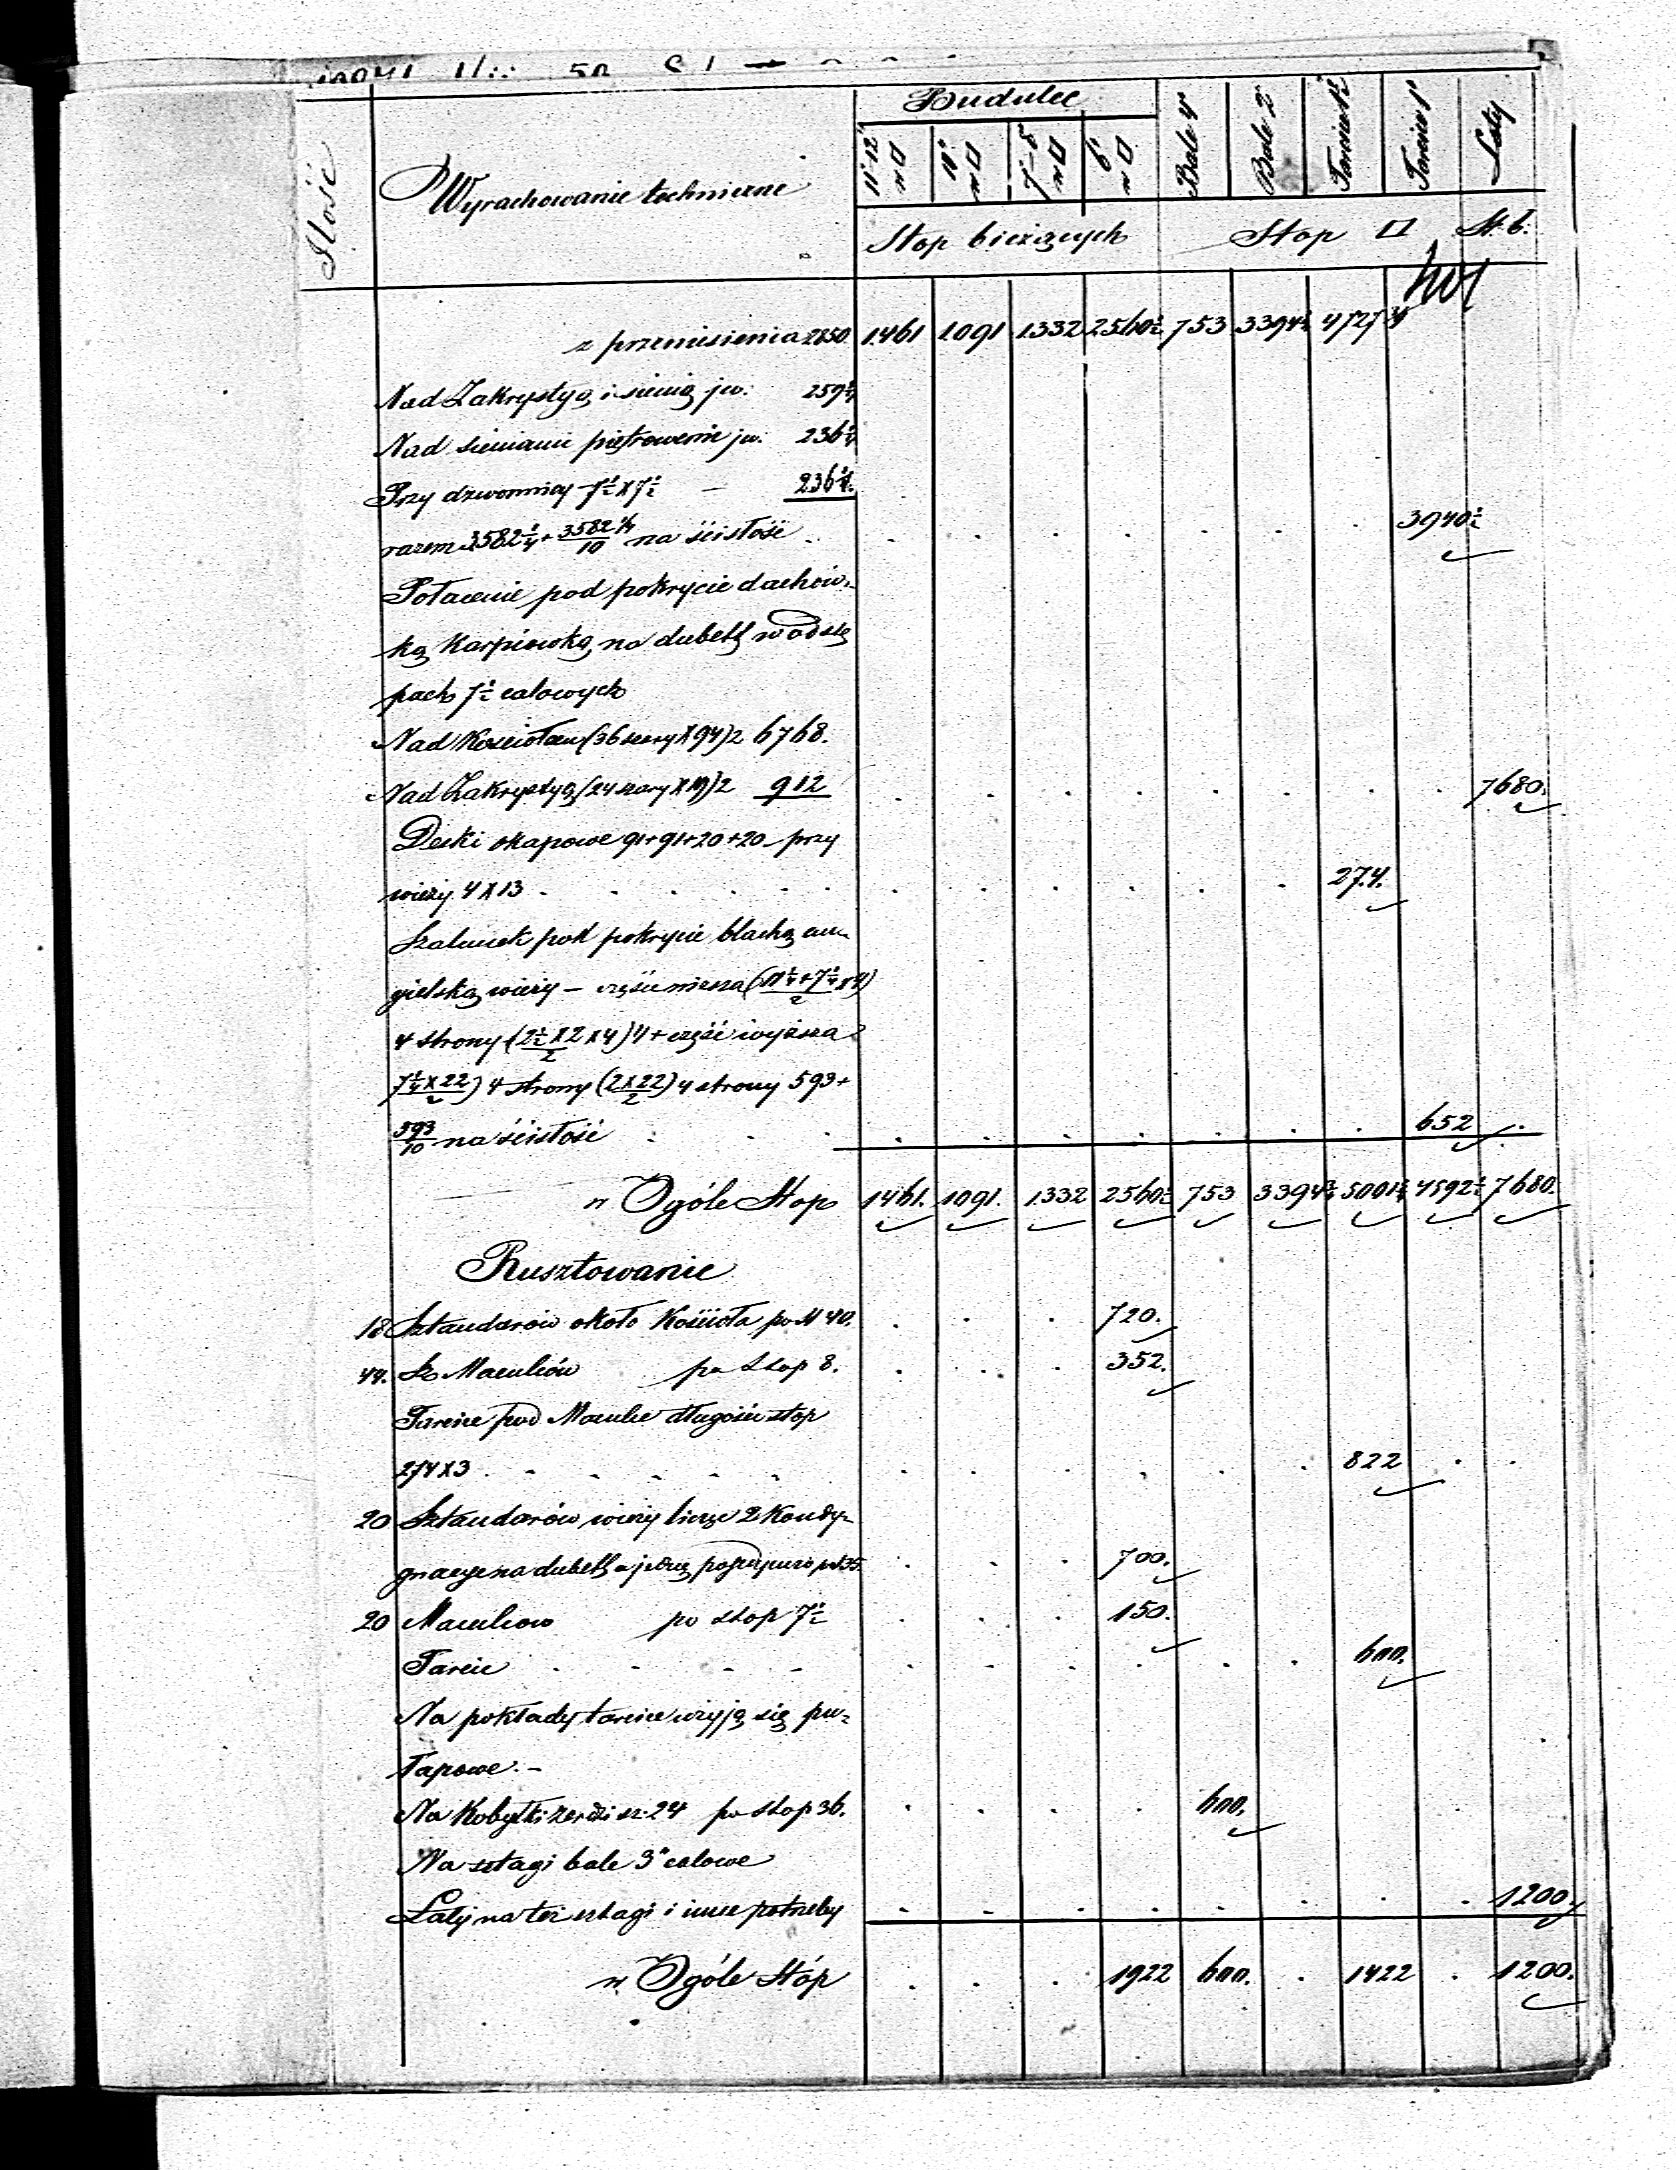 Ilość
Wyrachowanie techniczne
Budulec
11"-12" w □
10" w □
7"-8" w □
6" w □
Bale 4"
Bale 2"
Tarcice 1½"
Tarcice 1"
Łaty
Stop bieżących
Stop □
St. b:
z przeniesienia 2850. 1461 1091 1332 2560½ 753 3394¾ 4727¾
Nad Zakrystyą i sienią jw. 259¼
Nad sieniami piętrowemi jw. 236¼
Przy dzwonnicy 7½ x 7½ — 236¼.
razem 3582¼ + 3582¼/10 na ścisłość 3940½
Połacenie pod pokrycie dachów-
ką Karpiówką na dubelt w odstę
pach 7½ calowych
Nad Kościołem (36 szary x 94) 2 6768.
Nad Zakrystyą (24 szary x 19) 2 912 7680.
Deski okapowe 91+91+20+20 przy
wieży 4 x 13 . 274.
Szalunek pod pokrycie blachą an-
gielską wieży – część niższa (11¼+7¼/2 x 4)
4 strony (2½ x 2/2 x 4) 4 + część wyższa
7¼ x 22/2) 4 strony (2 x 22/2) 4 strony 593 +
593/10 na ścisłość 652
w Ogóle Stop 1461. 1091. 1332 2560½ 753 3394¾ 5001¾ 4592½ 7680.
Rusztowanie
18 Sztandarów około Kościoła po st 40. 720.
44. Maculców po Stop 8. 352.
Tarcice pod Maculce długości stop
274 x 3 . 822
20 Sztandarów wieży licząc 2 Kondy-
gnacye na dubelt 700.
20 Maculcow po stop 7½ 150.
Tarcic 600.
Na pokłady tarcice użyją się pu-
łapowe. –
Na Kobyłki żerdzi sz. 24 po stop 36. 600.
Na sztagi bale 3" calowe
Łaty na też sztagi i inne potrzeby 1200.
w Ogóle Stóp 1922 600. 1422 1200.